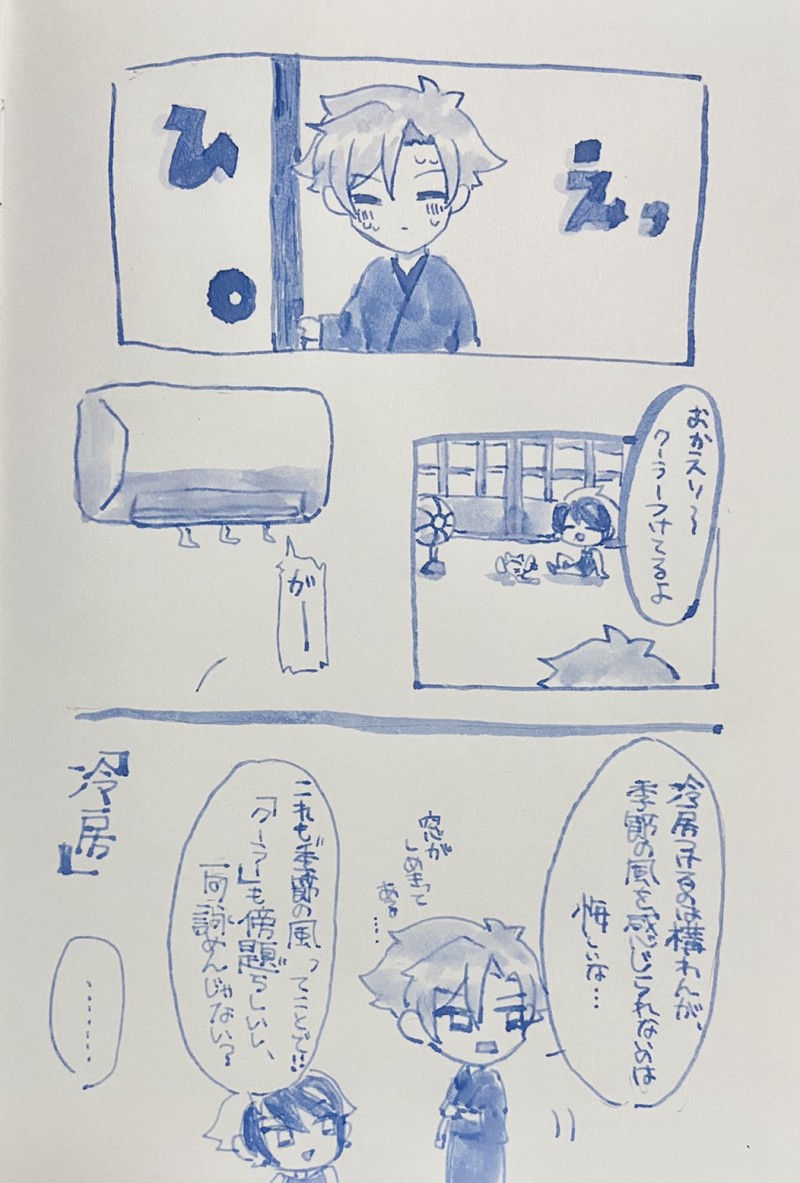 ひえっ
。
おかえり〜
クーラーつけてるよ
がー
冷房つけるのは構わんが、
季節の風を感じられないのは
悔しいな…
窓が
しめきって
ある…
これも"季節の風"ってことで!!
「クーラー」も傍題らしいし、
一句詠めんじゃない?
「冷房」
………